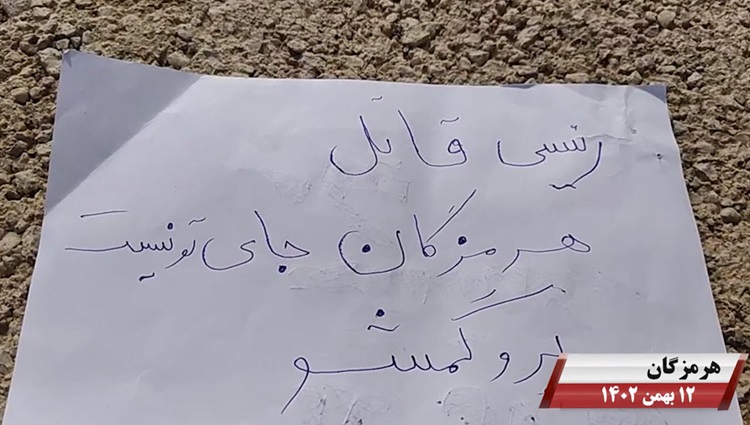 رئیسی قاتل
هرمزگان جای تو نیست
برو گمشو
هرمزگان
۱۲ بهمن ۱۴۰۲